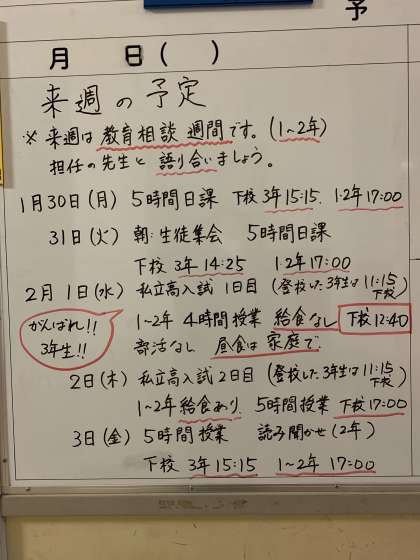 予
月 日( )
来週の予定
※ 来週は 教育相談 週間です。(1~2年)
担任の先生と 語り合いましょう。
1月30日(月) 5時間日課 下校 3年 15:15. 1·2年 17:00
31日(火) 朝:生徒集会 5時間日課
下校 3年 14:25 1·2年 17:00
2月 1日(水) 私立高入試 1日目 (登校した3年生は 11:15 下校)
がんばれ!! 3年生!!
1~2年 4時間授業 給食なし 下校 12:40
部活なし 昼食は 家庭で.
2日(木) 私立高入試 2日目 (登校した3年生は 11:15 下校)
1~2年 給食あり. 5時間授業 下校 17:00
3日(金) 5時間授業 読み聞かせ(2年)
下校 3年 15:15 1~2年 17:00